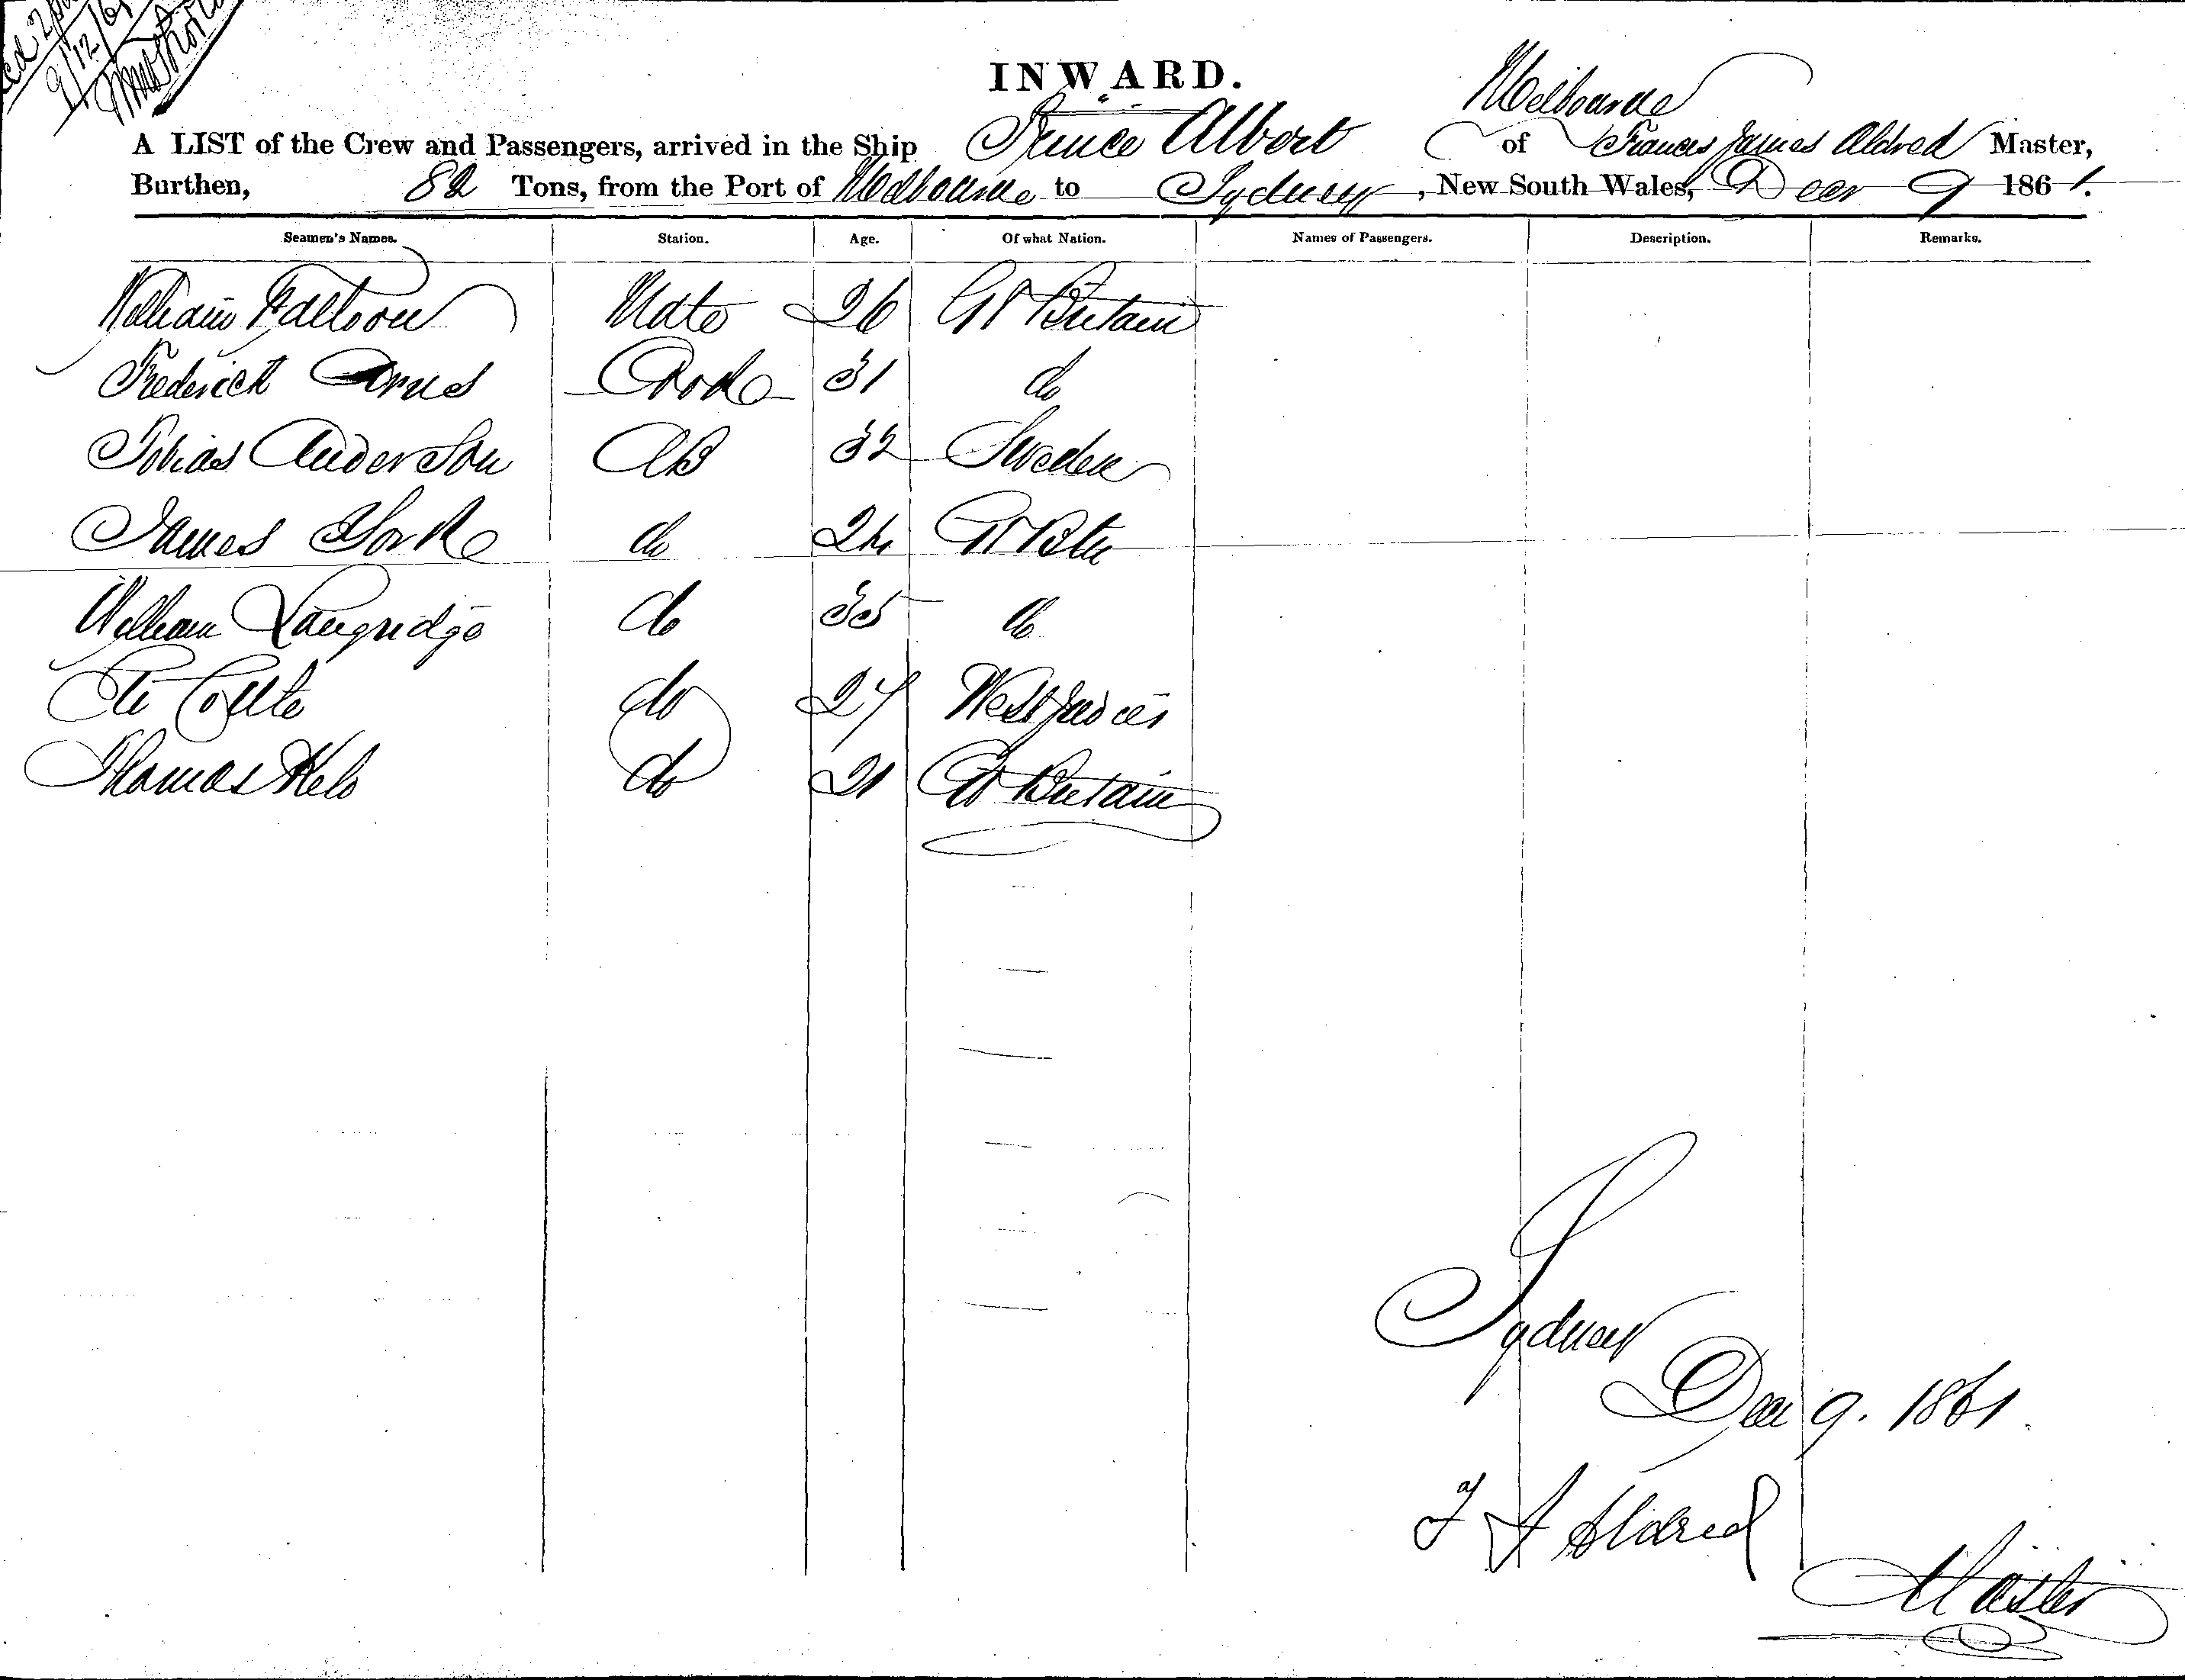 9/12/61
INWARD.
Melbourne
A LIST of the Crew and Passengers, arrived in the Ship Prince Albert of Frances James Aldred Master,
Burthen, 82 Tons, from the Port of Melbourne to Sydney, New South Wales, Decr 9 1861.
Seamen's Names. Station. Age. Of what Nation. Names of Passengers. Description. Remarks.
William Faltoou Mate 26 Gt Britain
Frederick Cook 31 do
Tobias Anderson AB 32 Sweden
James Yorke do 24 Gt Btn
William Langridge do 35 do
do 27 West Indies
Thomas do 21 Gt Britain
Sydney
Decr 9. 1861
F J Aldred
Master